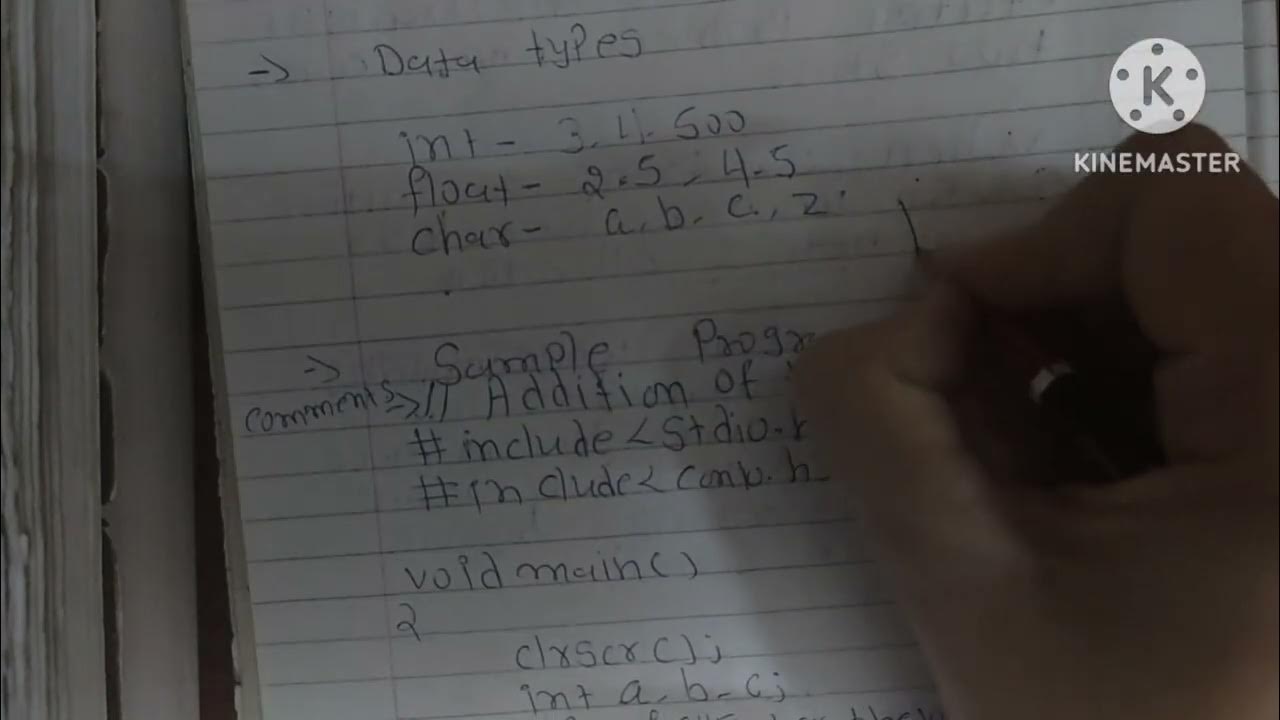 -> Data types
int - 3, 4, 500
float - 2.5, 4.5
char - a, b, c, z
K
KINEMASTER
-> Sample Progr
comments -> // Addition of
# include <stdio.h
# include <conio.h
void main()
{
clrscr();
int a, b, c;